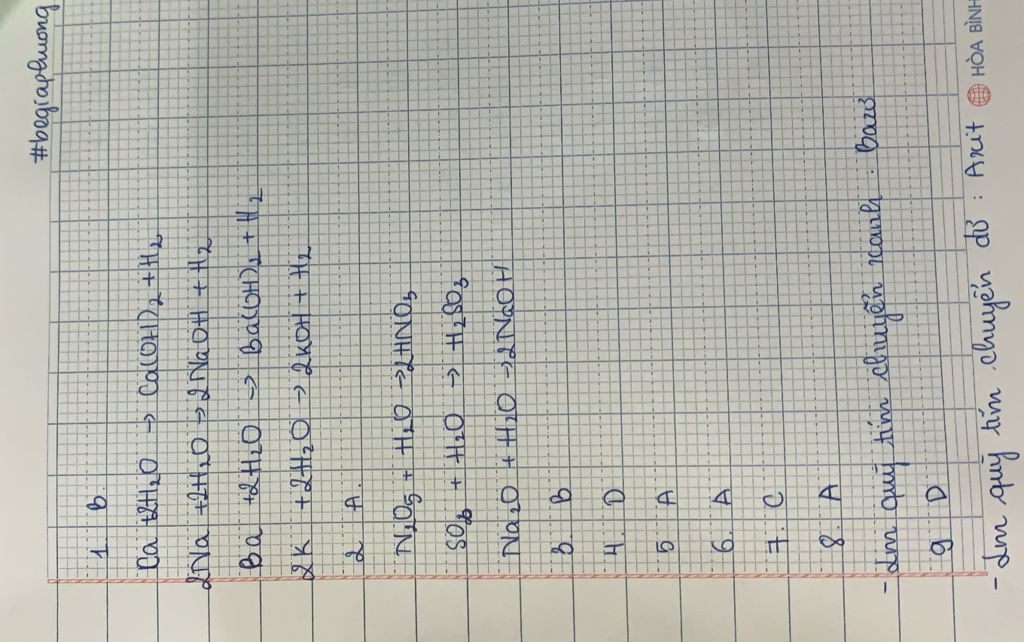 #begiaphuong
1 B.
Ca + 2H₂O → Ca(OH)₂ + H₂
2Na + 2H₂O → 2NaOH + H₂
Ba + 2H₂O → Ba(OH)₂ + H₂
2K + 2H₂O → 2KOH + H₂
2 A.
N₂O₅ + H₂O → 2HNO₃
SO₂ + H₂O → H₂SO₃
Na₂O + H₂O → 2NaOH
3. B
4. D
5 A
6. A
7. C
8. A
- Làm quỳ tím chuyển xanh : bazơ
9 D
- Làm quỳ tím chuyển đỏ : Axit
HÒA BÌNH